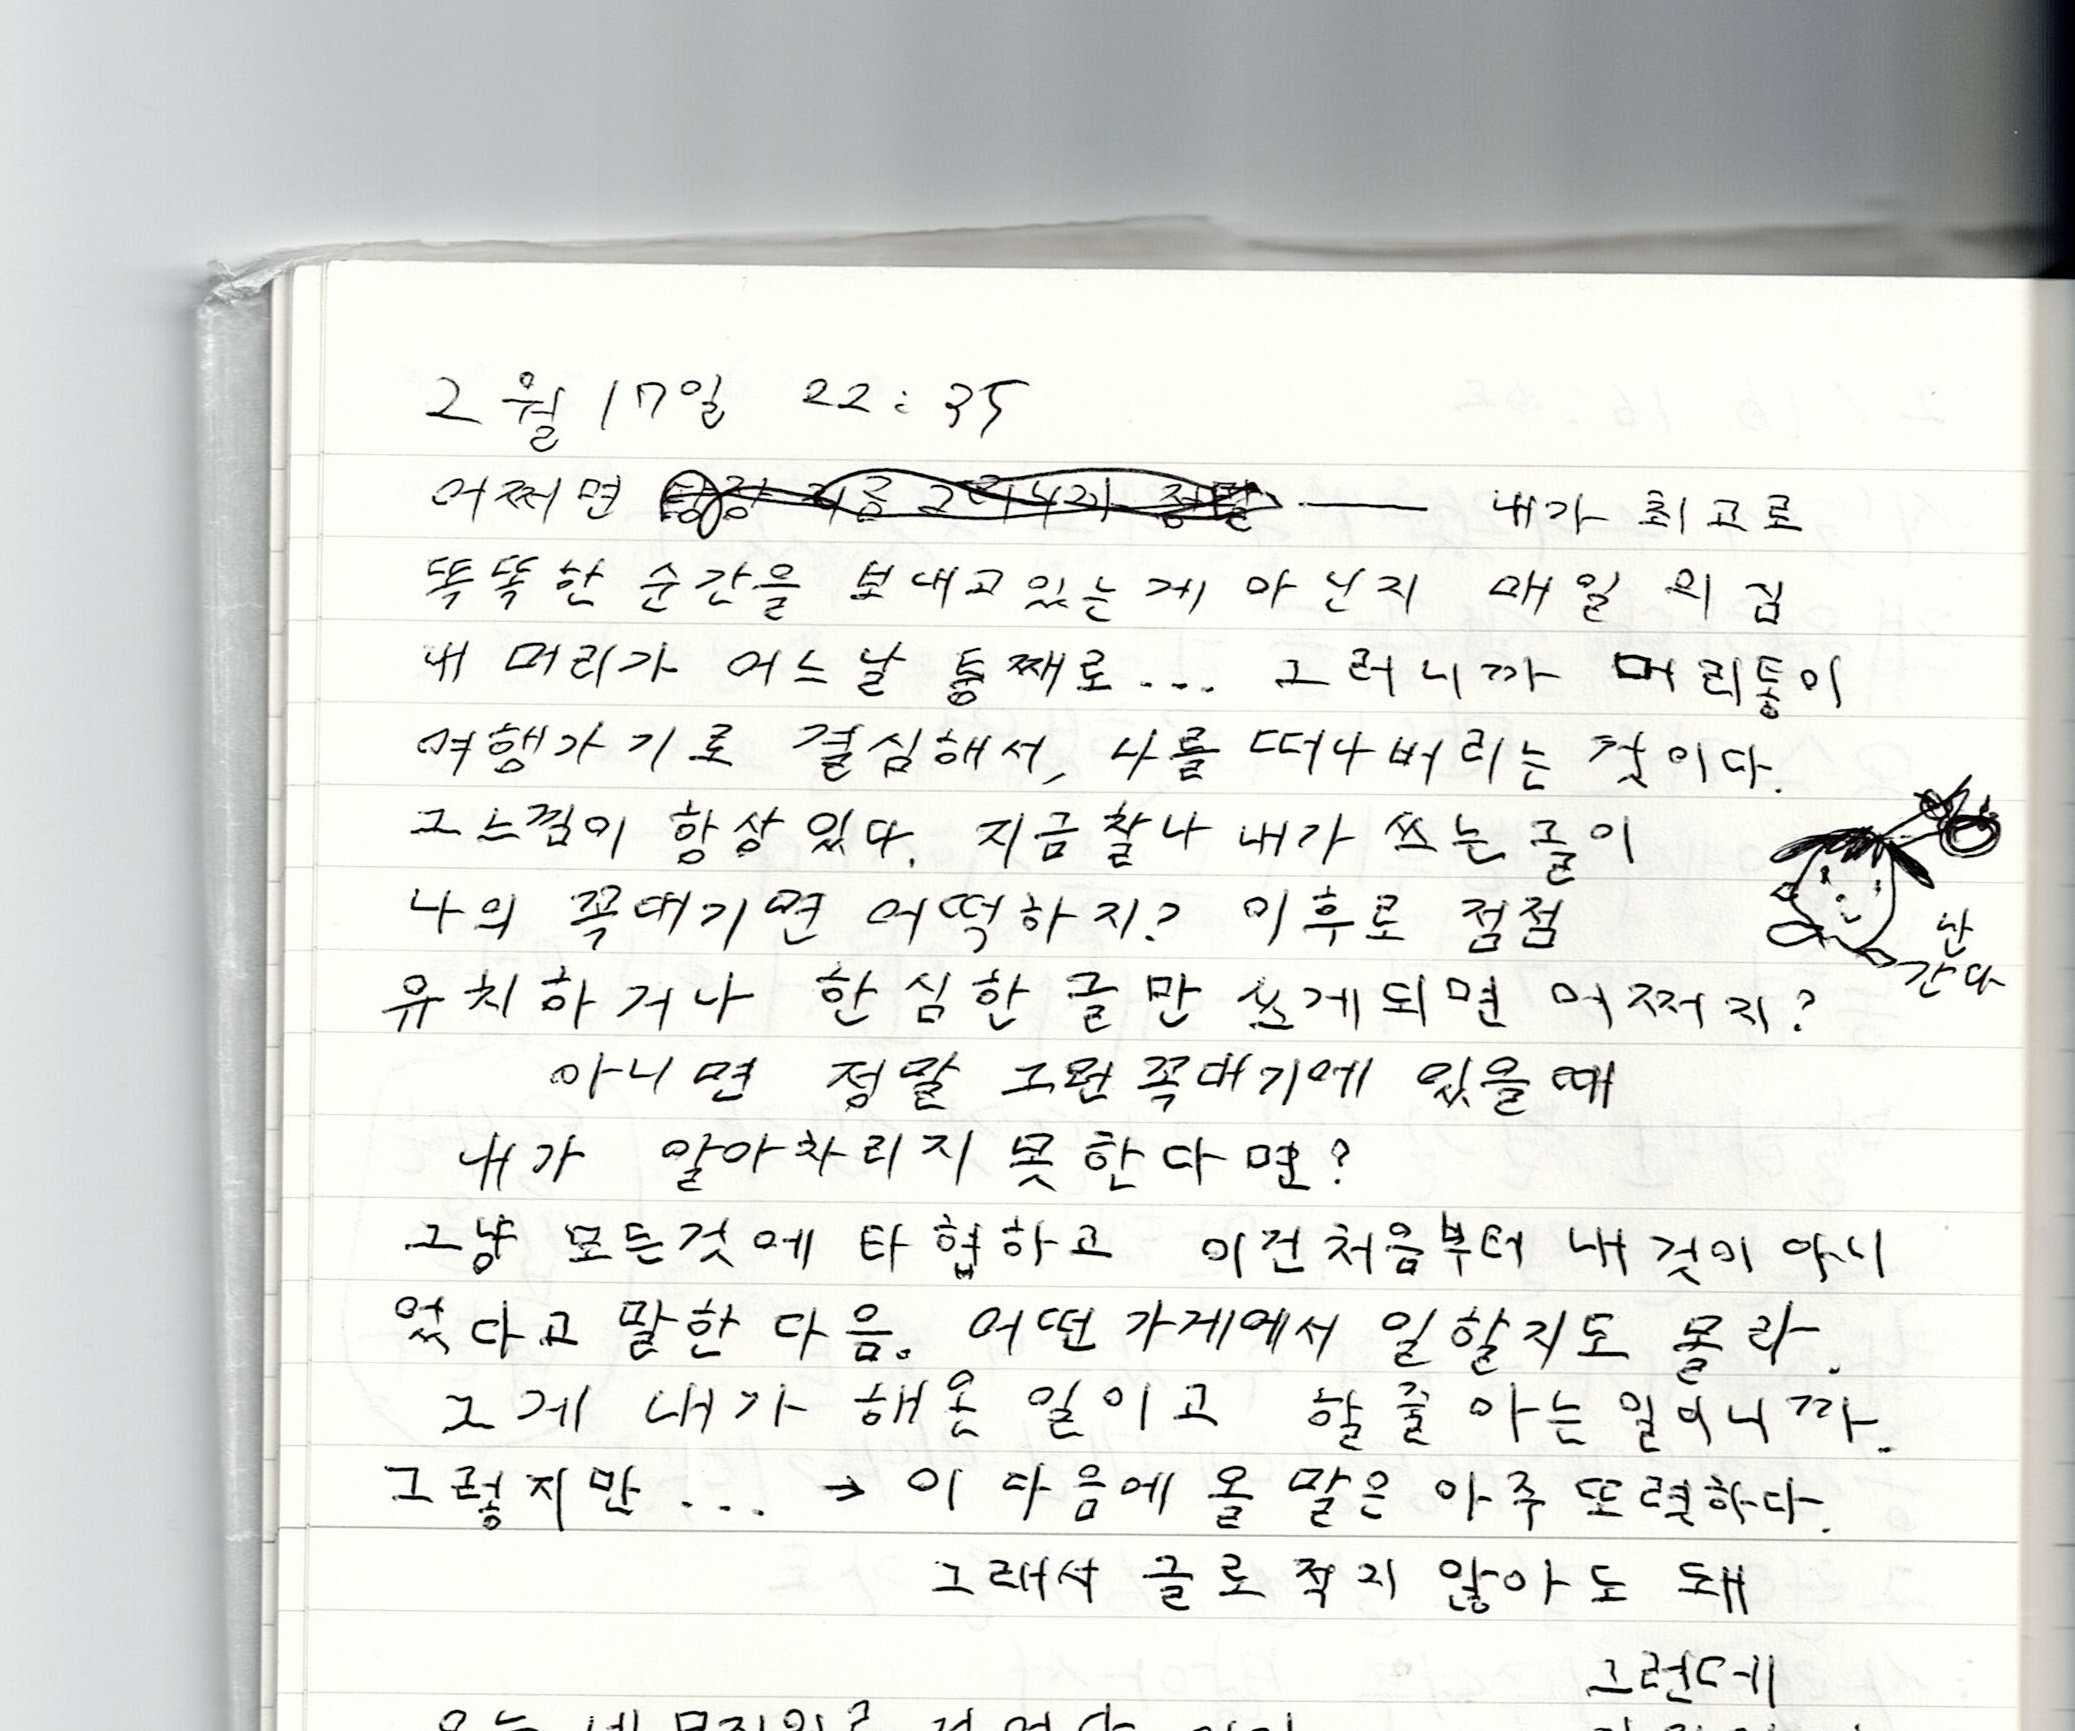 2월 17일 22:35
어쩌면 당장 지금 그러니까 정말 —— 내가 최고로
똑똑한 순간을 보내고있는게 아닌지 매일 의심
내 머리가 어느날 통째로... 그러니까 머리통이
여행가기로 결심해서, 나를 떠나버리는 것이다.
그느낌이 항상있다. 지금찰나 내가 쓰는글이
나의 꼭대기면 어떡하지? 이후로 점점
난
간다
유치하거나 한심한 글만 쓰게되면 어쩌지?
아니면 정말 그런꼭대기에 있을때
내가 알아차리지 못한다면?
그냥 모든것에 타협하고 이건처음부터 내것이아니
었다고 말한다음. 어떤가게에서 일할지도 몰라.
그게 내가 해온 일이고 할줄 아는일이니까.
그렇지만... → 이 다음에 올 말은 아주 또렷하다.
그래서 글로 적지 않아도 돼
그런데